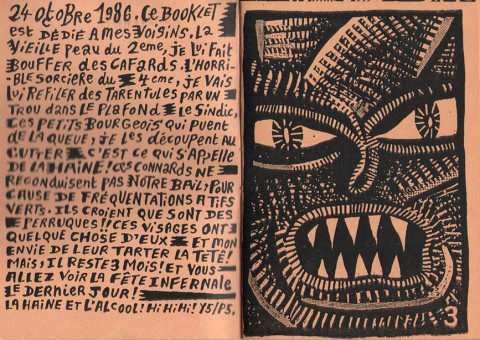 24 OCTOBRE 1986. CE BOOKLET
EST DÉDIÉ A MES VOISINS. LA
VIEILLE PEAU DU 2EME, JE LUI FAIT
BOUFFER DES CAFARDS. L'HORRI-
BLE SORCIÈRE DU 4EME, JE VAIS
LUI REFILER DES TARENTULES PAR UN
TROU DANS LE PLAFOND LE SINDIC,
CES PETITS BOURGEOIS QUI PUENT
DE LA QUEUE, JE LES DÉCOUPENT AU
CUTTER C'EST CE QUI S'APPELLE
DE LA HAINE! CES CONNARDS NE
RECONDUISENT PAS NOTRE BAIL, POUR
CAUSE DE FRÉQUENTATIONS A TIFS
VERTS. ILS CROIENT QUE SONT DES
PERRUQUES!! CES VISAGES ONT
QUELQUE CHOSE D'EUX ET MON
ENVIE DE LEUR TARTER LA TETE!
MAIS, IL RESTE 3 MOIS! ET VOUS
ALLEZ VOIR LA FÊTE INFERNALE
LE DERNIER JOUR!
LA HAINE ET L'ALCOOL! HI HI HI! Y5/P5.
3